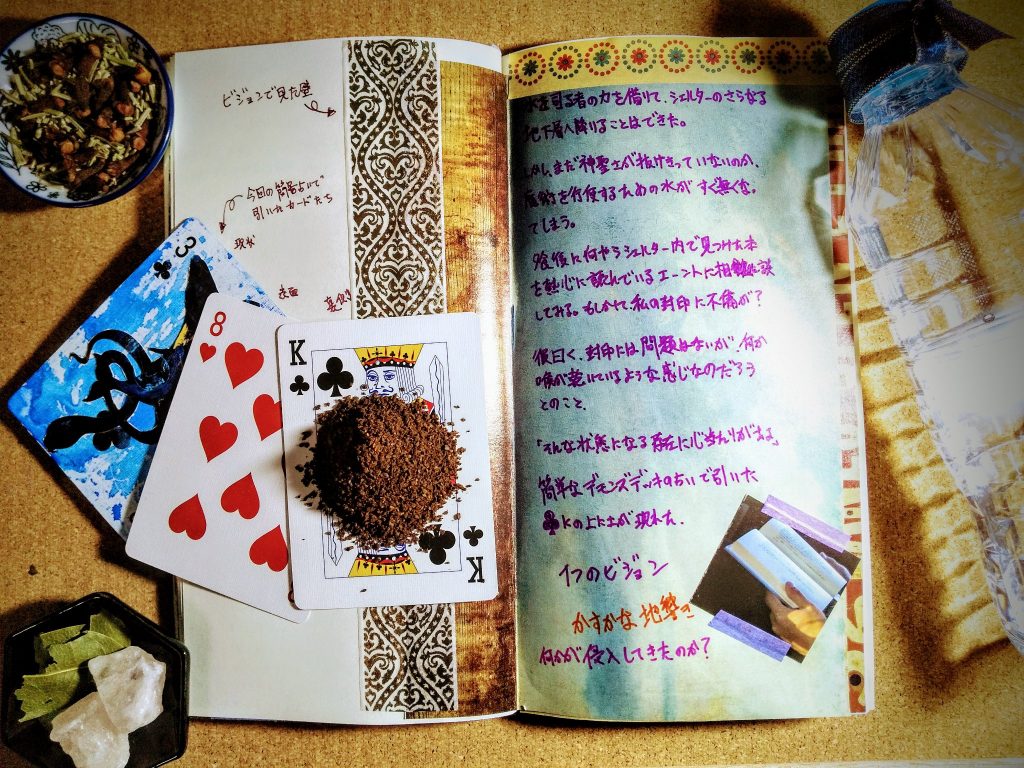 ビジョンで見た壁
今回の簡易占いで
引いたカードたち
現状
表面
3
8
K
K
水を司る者の力を借りて、シェルターのさらなる
地下層へ降りることはできた。
しかし、まだ神聖土が抜けきっていないのか、
魔術を行使するための水がすぐ無くなっ
てしまう。
食後に何やらシェルター内で見つけた本
を熱心に読んでいるエーントに相談
してみる。もしかして、私の封印に不備が?
彼曰く、封印には問題はないが、何か
喉が乾いているような感じなのだろう
とのこと。
「そんな状態になる存在に心当たりがある」
簡単なデモンズデッキの占いで引いた
♣Kの上に土が現れた。
1つのビジョン
かすかな地響き
何かが侵入してきたのか?